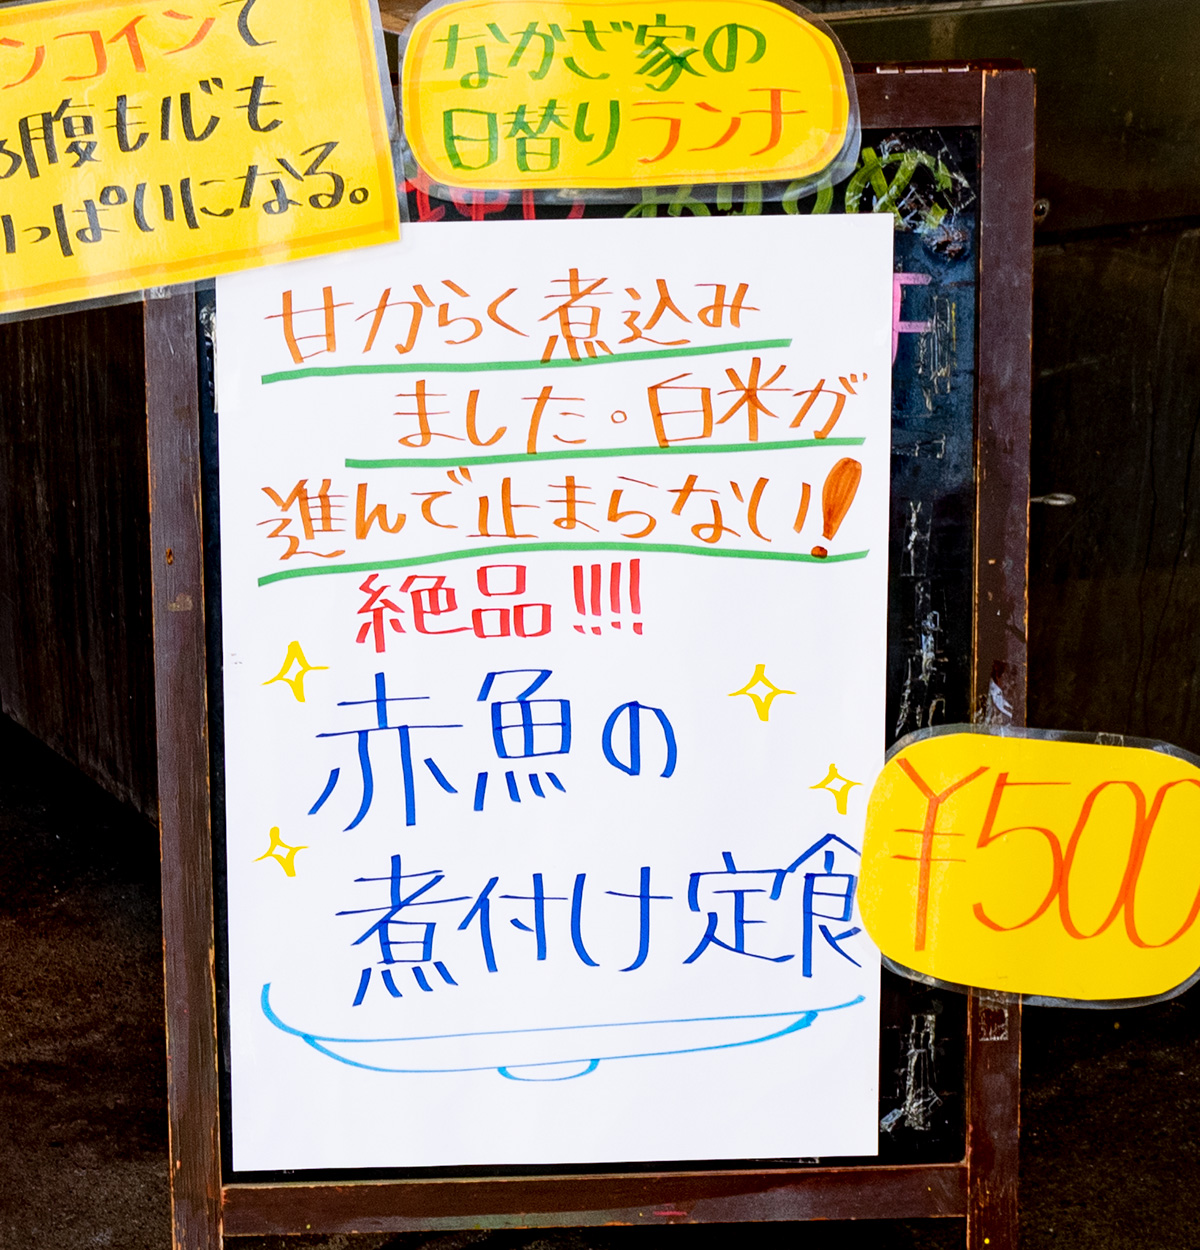 ンコインで
腹も心も
っぱいになる。
なかざ家の
日替りランチ
甘からく煮込み
ました。白米が
進んで止まらない!
絶品!!!!
赤魚の
煮付け定食
¥500